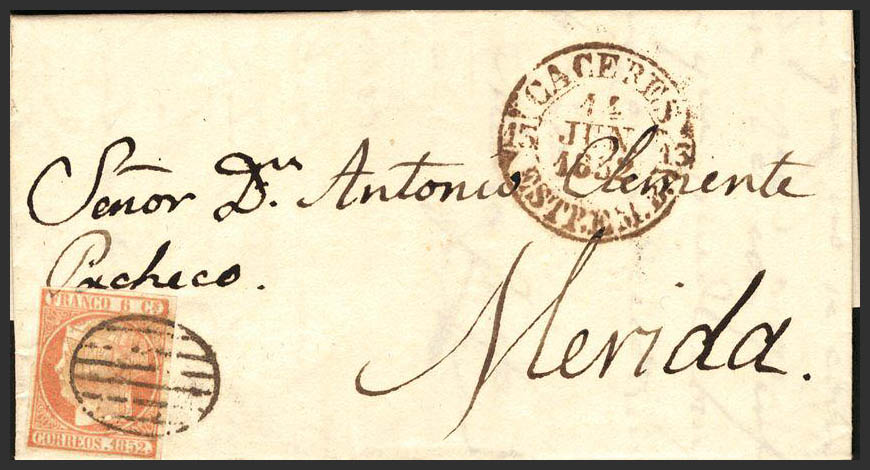 CACERES
14
JUN
1852
ESTREM.
Señor Dn. Antonio Clemente
Pacheco.
Merida.
FRANCO 6 Cs
CORREOS. 1852.